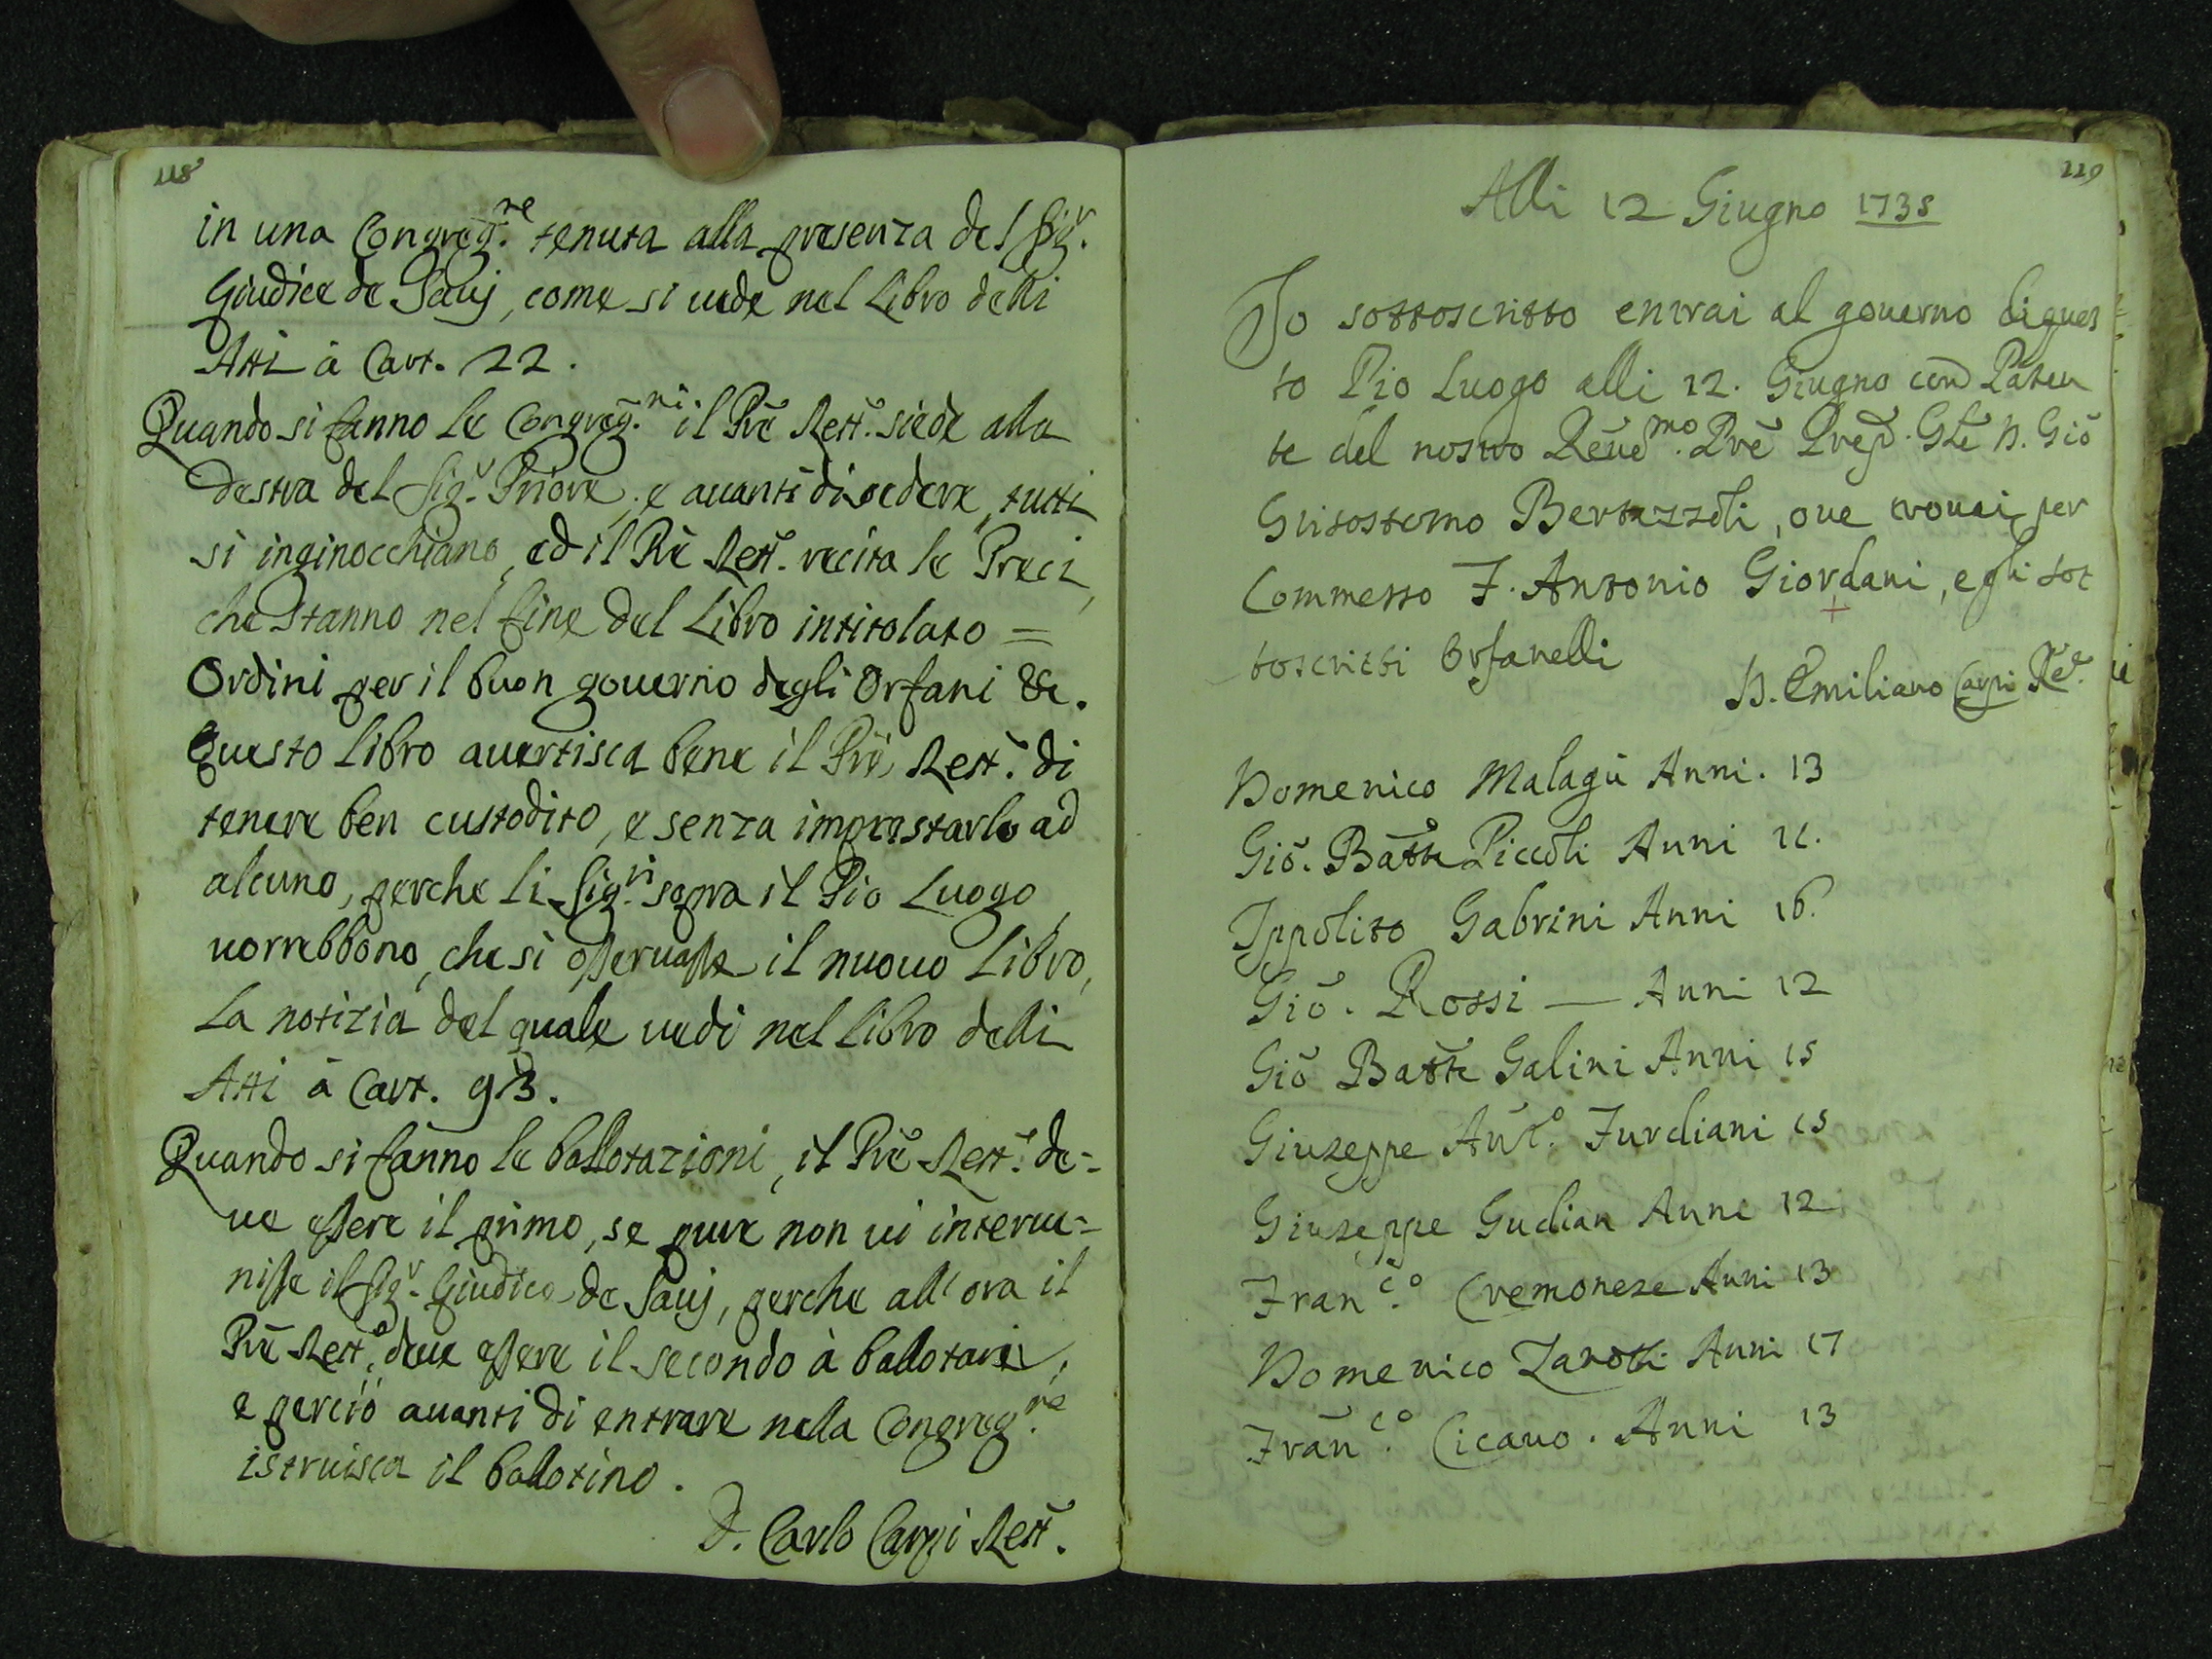 118
in una Congreg.ne tenuta alla presenza del Sig.r
Giudice de Savj, come si vede nel Libro delli
Atti à Cart. 22.
Quando si fanno le Congreg.ni il Prē Rett.e siede alla
destra del Sig.r Priore, e avanti di sedere, tutti
si inginocchiano, ed il Prē Rett. recita le Preci,
che stanno nel fine del Libro intitolato =
Ordini per il buon governo degli Orfani &c.
Questo libro avertisca bene il Prē Rett.e di
tenere ben custodito, e senza imprestarlo ad
alcuno, perche li Sig.ri sopra il Pio Luogo
vorrebbono, che si osservasse il nuovo Libro,
La notizia del quale vedi nel libro delli
Atti à Cart. 93.
Quando si fanno le ballotazioni, il Prē Rett.e de=
ve essere il primo, se pure non vi interve=
nisse il Sig.r Giudice de Savj, perche all'ora il
Prē Rett.e deve essere il secondo à ballotare,
e perciò avanti di entrare nella Congreg.ne
istruisca il ballotino.
D. Carlo Carpi Rett.e
119
Alli 12 Giugno 1738
Io sottoscritto entrai al governo di ques
to Pio Luogo alli 12. Giugno con Paten
te del nostro Revēd.mo Prē Prep. Gle D. Giō
Grisostomo Bertazzoli, ove trovai per
Commesso F. Antonio Giordani, e gli sot
toscritti Orfanelli
D. Emiliano Carpi Re.e
Domenico Malagù Anni. 13
Giō. Batta Piccoli Anni 11.
Ippolito Gabrini Anni 16.
Giō. Rossi — Anni 12
Giō Batta Galini Anni 15
Giuseppe Ant.o Furliani 15
Giuseppe Gudian Anni 12
Fran.co Cremonese Anni 13
Domenico Zarotti Anni 17
Fran.co Cicavo. Anni 13